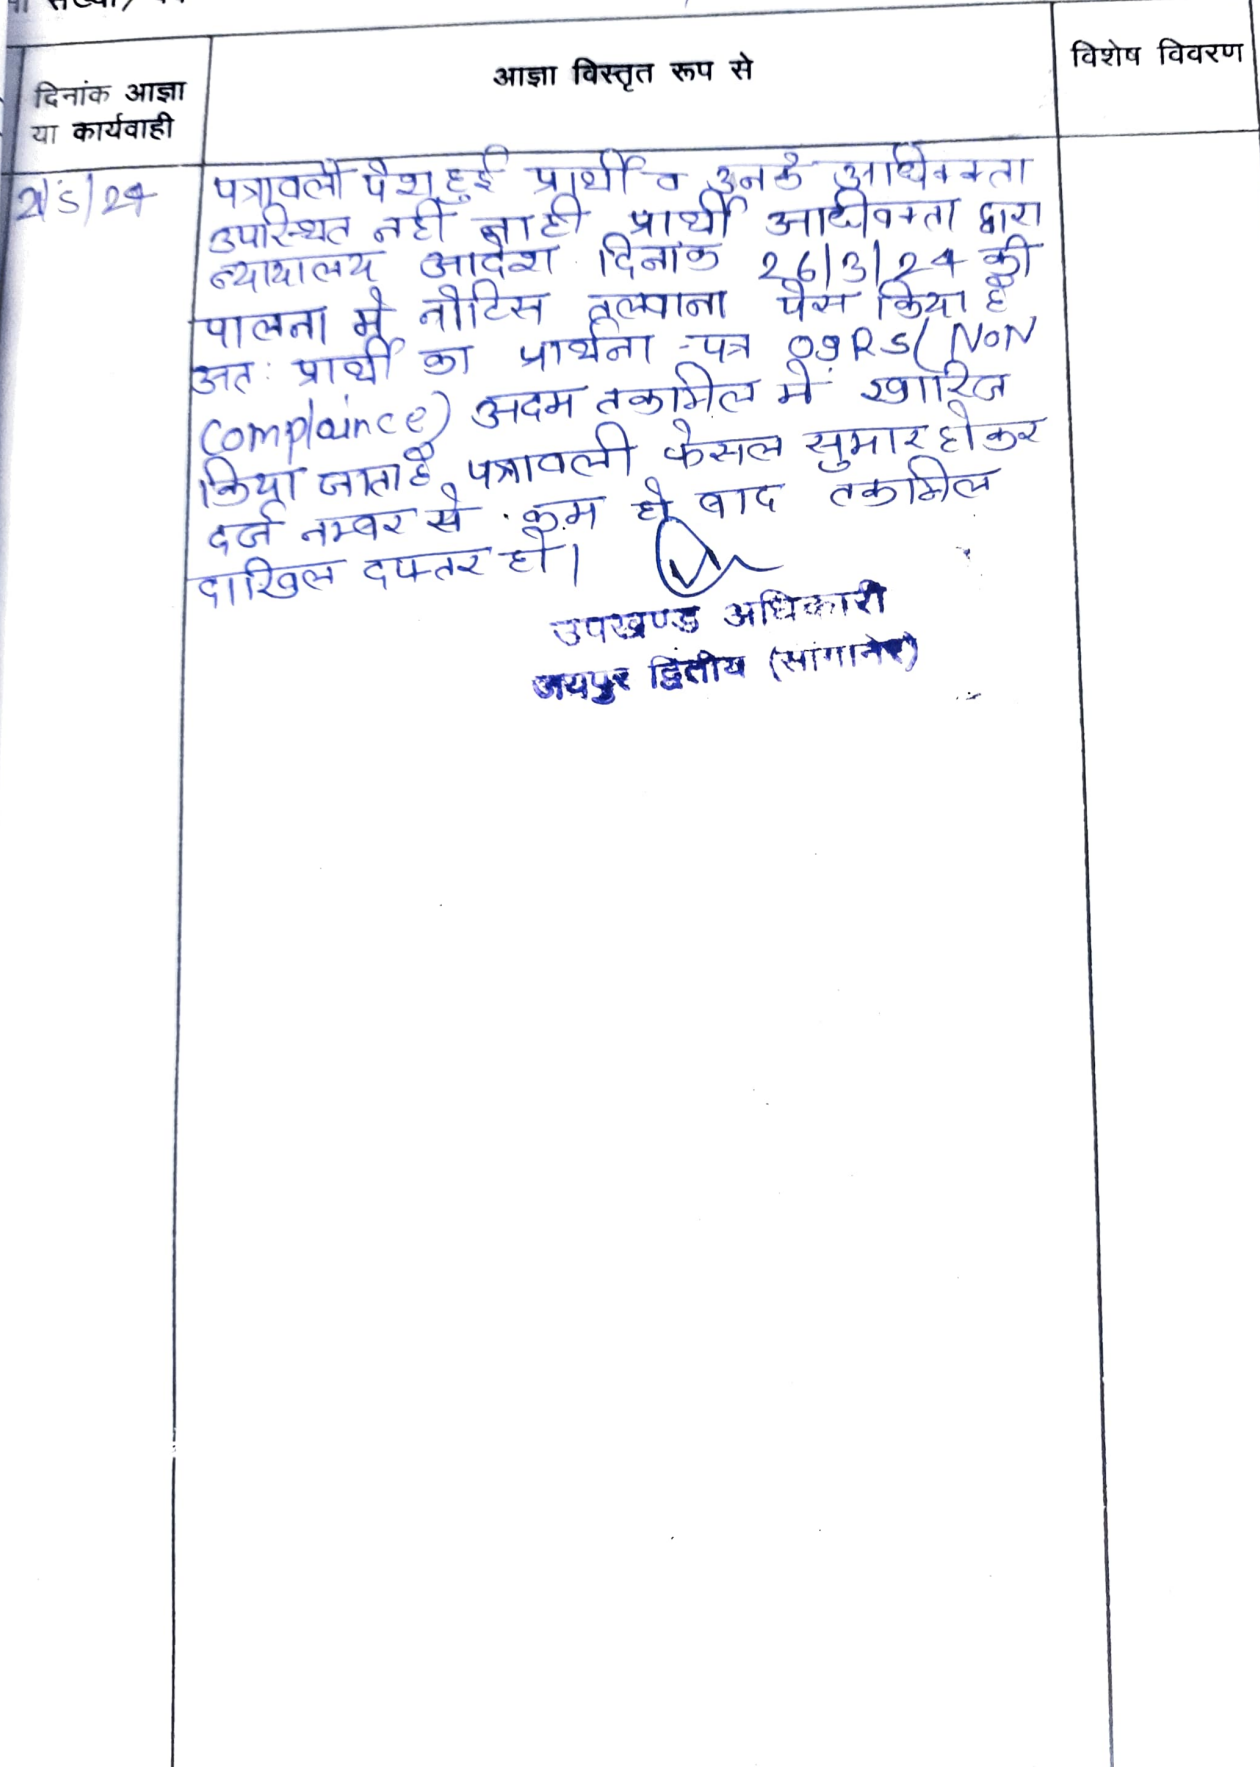 दिनांक आज्ञा
या कार्यवाही
आज्ञा विस्तृत रूप से
विशेष विवरण
पत्रावली पेश हुई प्रार्थी व उनके अधिवक्ता
उपस्थित नहीं ना ही प्रार्थी अधिवक्ता द्वारा
न्यायालय आदेश दिनांक 26/3/24 की
पालना मे नोटिस तल्वाना पेस किया है
अतः प्रार्थी का प्रार्थना-पत्र 09RS( NON
complaince) अदम तकामिल में खारिज
किया जाता है, पत्रावली फेसल सुमार होकर
दर्ज नम्बर से कम हो बाद तकामिल
दाखिल दफ्तर हो।
उपखण्ड अधिकारी
जयपुर द्वितीय (सांगानेर)